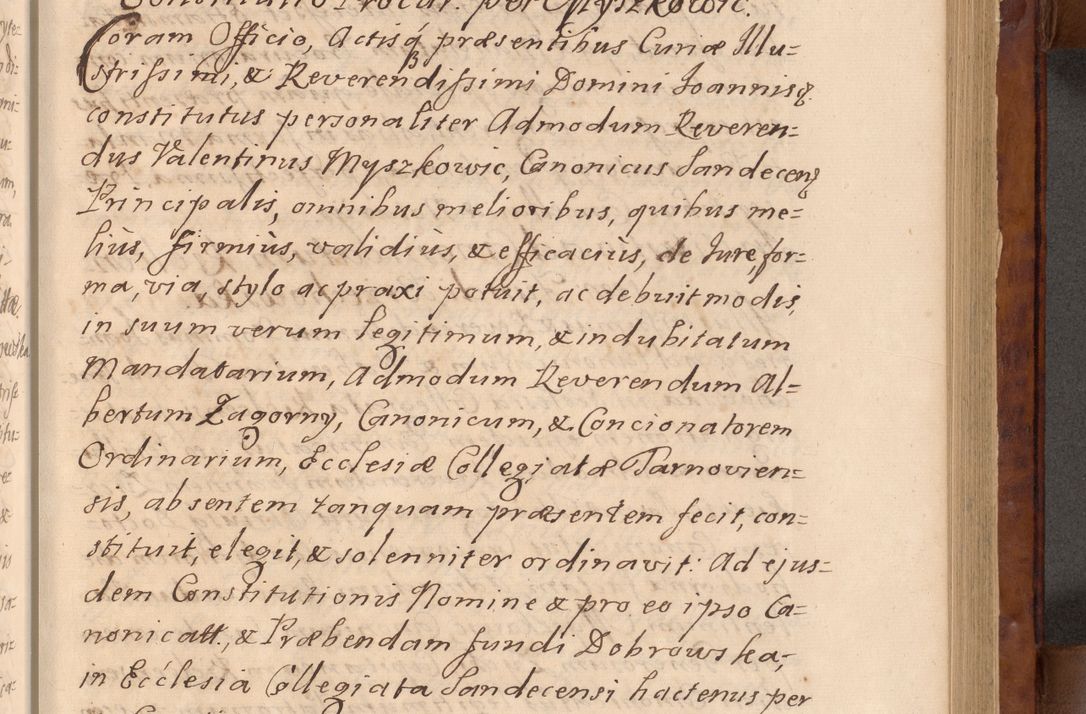 Constitutio Procur. per Myszkowic.
Coram Officio, Actisq́ præsentibus Curiæ Illu=
strissimi, & Reverendissimi Domini Joannis q.
constitutus personaliter Admodum Reveren=
dus Valentinus Myszkowic, Canonicus Sandecens
Principalis, omnibus melioribus, quibus me=
liùs, firmiùs, validiùs, & efficaciùs, de Jure, for=
ma, via, stylo ac praxi potuit, ac debuit modis,
in suum verum legitimum, & indubitatum
Mandatarium, Admodum Reverendum Al=
bertum Zagorny, Canonicum, & Concionatorem
Ordinarium, Ecclesiæ Collegiatæ Tarnovien=
sis, absentem tanquam præsentem fecit, con=
stituit, elegit, & solenniter ordinavit: Ad ejus=
dem Constitutionis Nomine & pro eo ipso Ca=
nonicatt., & Præbendam fundi Dobrowska,
in Ecclesia Collegiata Sandecensi hactenus per